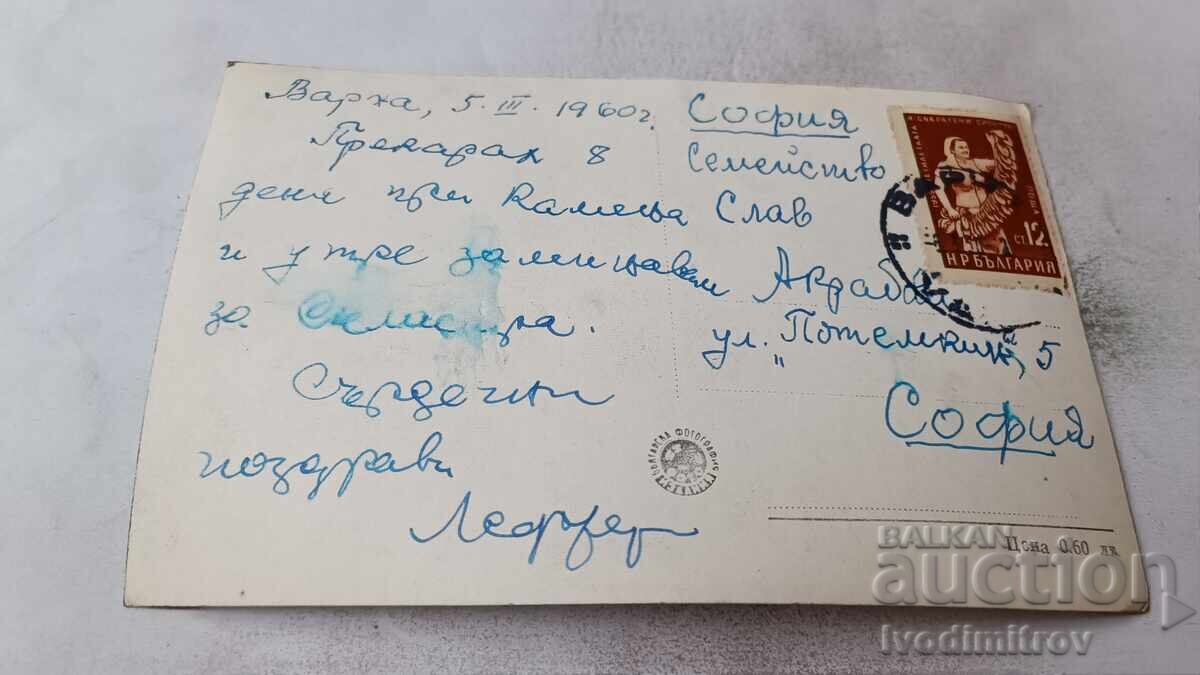 Варна, 5. III. 1960 г.
Прекарах 8
дена при Камена Слав
и утре заминавам
за
Сърдечни
поздрави
София
Семейство
ул. "Потемкин" 5
София
БЪЛГАРСКА ФОТОГРАФИЯ
Цена 0.60 лв
12
СТ.
НР БЪЛГАРИЯ
BALKAN
auction
Ivodimitrov